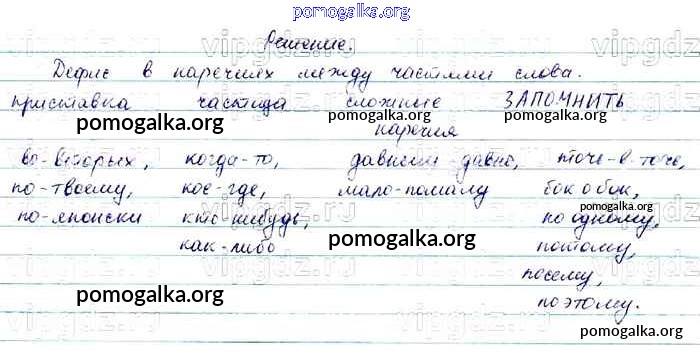 pomogalka.org
Решение.
Дефис в наречиях между частями слова.
приставка частица сложные ЗАПОМНИТЬ
наречия
pomogalka.org pomogalka.org
во-вторых, когда-то, давным-давно, точь-в-точь,
по-твоему, кое-где, мало-помалу бок о бок,
pomogalka.org
по-японски кто-нибудь, по одному,
как-либо pomogalka.org потому,
посему,
pomogalka.org поэтому.
pomogalka.org